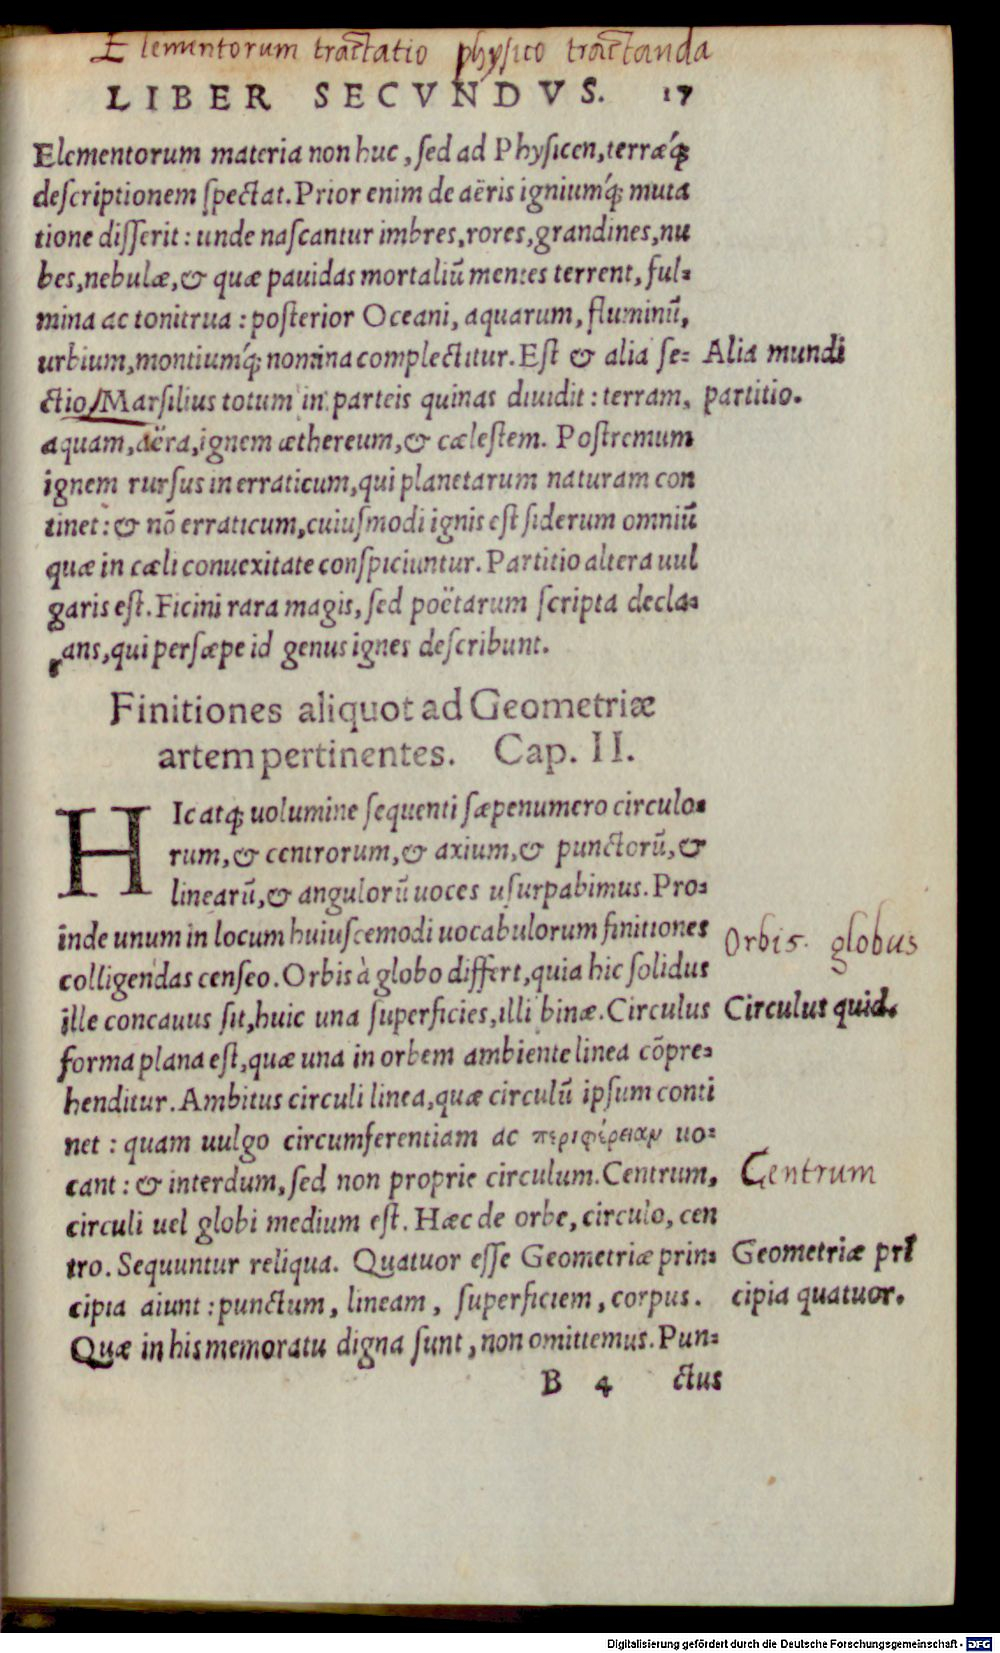 Elementorum tractatio physico tractanda
LIBER SECVNDVS. 17
Elementorum materia non huc, sed ad Physicen, terræq́ꝫ
descriptionem spectat. Prior enim de aëris igniumq́ꝫ muta
tione disserit: unde nascantur imbres, rores, grandines, nu
bes, nebulæ, & quæ pauidas mortaliũ mentes terrent, ful-
mina ac tonitrua: posterior Oceani, aquarum, fluminũ,
urbium, montiumq́ꝫ nomina complectitur. Est & alia se-
Alia mundi
ctio/Marsilius totum in parteis quinas diuidit: terram,
partitio.
aquam, aëra, ignem æthereum, & cælestem. Postremum
ignem rursus in erraticum, qui planetarum naturam con
tinet: & nõ erraticum, cuiusmodi ignis est siderum omniũ
quæ in cæli conuexitate conspiciuntur. Partitio altera uul
garis est. Ficini rara magis, sed poëtarum scripta decla-
rans, qui persæpe id genus ignes describunt.
Finitiones aliquot ad Geometriæ
artem pertinentes. Cap. II.
HIc atqꝫ uolumine sequenti sæpenumero circulo-
rum, & centrorum, & axium, & punctorũ, &
linearũ, & angulorũ uoces usurpabimus. Pro-
inde unum in locum huiuscemodi uocabulorum finitiones
Orbis. globus
colligendas censeo. Orbis à globo differt, quia hic solidus
ille concauus sit, huic una superficies, illi binæ. Circulus
Circulus quid.
forma plana est, quæ una in orbem ambiente linea cõpre-
henditur. Ambitus circuli linea, quæ circulũ ipsum conti
net: quam uulgo circumferentiam ac περιφέρειαν uo-
cant: & interdum, sed non proprie circulum. Centrum,
Centrum
circuli uel globi medium est. Hæc de orbe, circulo, cen
tro. Sequuntur reliqua. Quatuor esse Geometriæ prin-
Geometriæ pri
cipia aiunt: punctum, lineam, superficiem, corpus.
cipia quatuor.
Quæ in his memoratu digna sunt, non omittemus. Pun-
B 4 ctus
Digitalisierung gefördert durch die Deutsche Forschungsgemeinschaft - DFG